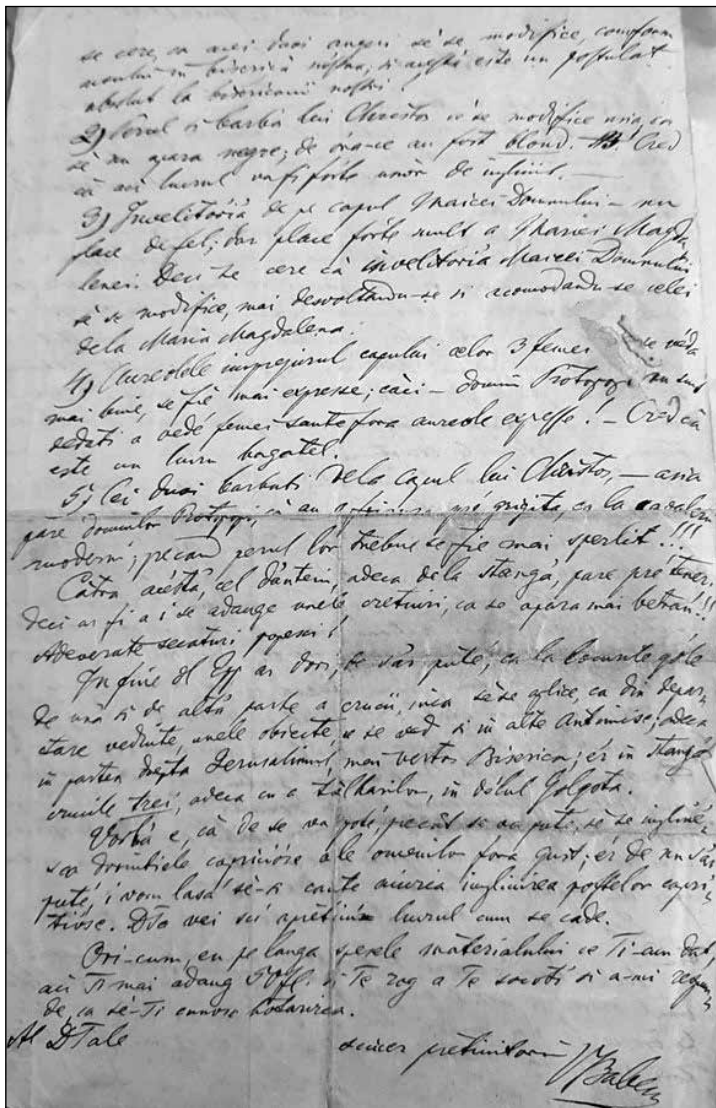 se cere, ca acei doi angeri sé se modifice, conform
usului in biserica nostra, si acésta este un postulat
absolut la bisericanii nostri.
2) Perul si barba lui Christos sé se modifice asia, ca
sé nu apara negre; de óra-ce au fost blond. Cred
că aci lucrul va fi fórte usior de implinit. —
3) Invelitoria de pe capul Maicei Domnului — nu
place de fel; dar place forte mult a Mariei Magda,
lenei. Deci se cere că invelitoria Maicei Domnului
sé se modifice, mai desvoltandu-se si acomodandu-se celei
dela Maria Magdalena.
4) Aureolele imprejurul capului celor 3 femei se véda
mai bine, se fie mai expresse; căci — domnii Protopopi nu sunt
dedati a vedé femei sante fora aureole expresse! — Cred că
este un lucru bagatel.
5) Cei duoi barbati dela capul lui Christos, — asia
pare domnilor Protopopi, că au pré grigita, ca la cavaleri
moderni; pecand perul lor trebue se fie mai sperlit!!!
Catra acésta, cel d'anteiu, adeca dela stanga, pare pré tener.
deci ar fi a i se adauge unele cretiuri, ca se apara mai betran!!
Adeverate secaturi popesci!
In fine dl Epp ar dori, de s'ar puté, ca la locurile góle
de una si de alta parte a crucii, inca sé se aplice, ca din depar,
tare vediute, unele obiecte, ce se ved si in alte Antimise; adeca
in partea drépta Jerusalimul, mai vertos Biserica; ér in stanga
crucile trei, adeca cu a tălharilor, in délul Golgota.
Vorba e, că de se va poté, pecât se va pute, sé se impline,
sca dorintiele capricióse ale omenilor fora gust; ér de nu s'ar
puté, i vom lasá sé-si caute aiurea implinirea poftelor capri,
tióse. DTa vei sci apretiui lucrul cum se cade.
Ori-cum, eu pe langa spesele materialului ce Ti-am dat,
aci Ti mai adaug 50 fl. si Te rog a Te socoti si a-mi respun,
de, ca sé-Ti cunosc hotarirea.
Al DTale
sincer pretiuitoriu
VBabeș